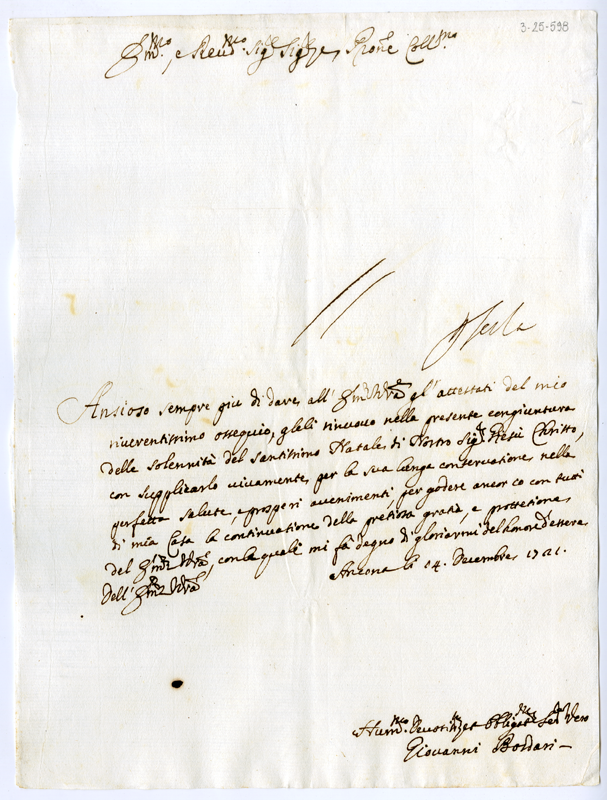 3-25-598
Em.mo, e Reu.mo Sig.r Sig.re, Prone Coll.mo
Ansioso sempre più di dare all' Em.za V.ra gl' attestati del mio
riuerentissimo ossequio, gleli rinuouo nella presente congiuntura
delle solennità del santissimo Natale di Nostro Sig.re Giesù Christo,
con supplicarlo viuamente per la sua longa conseruatione nella
perfetta salute, e prosperi auuenimenti, per godere ancor co con tutti
di mia Casa la continuatione della pretiosa gratia, e prottetione
del Em.za V.ra, con la quale mi fà degno di gloriarmi del honore d'essere
Dell' Em.za V.ra
Ancona li 14. Decembre 1721.
Hum.mo Deuot.mo et Obligat.mo Ser.re Vero
Giovanni Boldari